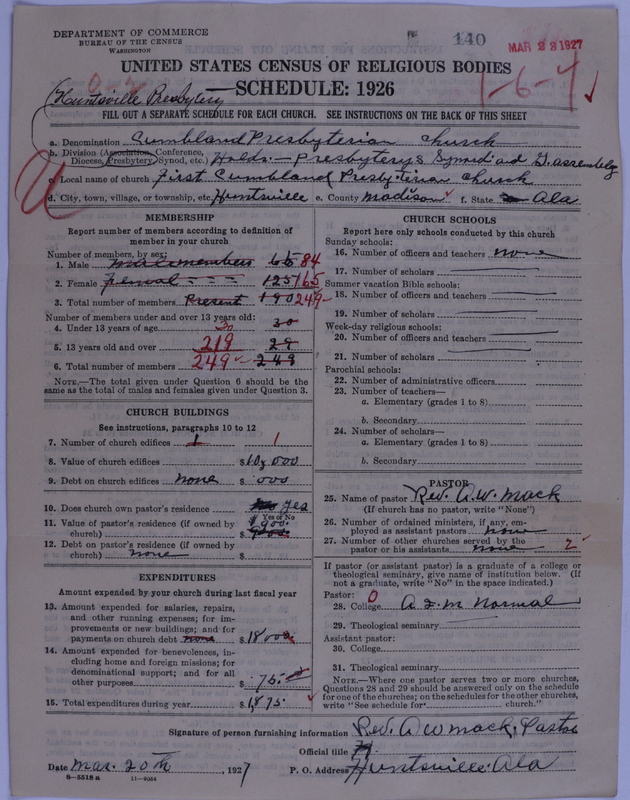 DEPARTMENT OF COMMERCE
BUREAU OF THE CENSUS
WASHINGTON
140
MAR 28 1927
UNITED STATES CENSUS OF RELIGIOUS BODIES
SCHEDULE: 1926
Huntsville Presbytery
1-6-4
FILL OUT A SEPARATE SCHEDULE FOR EACH CHURCH. SEE INSTRUCTIONS ON THE BACK OF THIS SHEET
a. Denomination Cumbland Presbyterian Church
b. Division (Association, Conference, Diocese, Presbytery, Synod, etc.) Holds - Presbyterys Synod ad G. assembly
c. Local name of church First Cumbland Presbyterian Church
d. City, town, village, or township, etc. Huntsville e. County Madison f. State Ala
MEMBERSHIP
Report number of members according to definition of
member in your church
Number of members, by sex:
1. Male male members 65 84
2. Female femal 125 165
3. Total number of members Present 190 249
Number of members under and over 13 years old:
4. Under 13 years of age 30 30
5. 13 years old and over 219 29
6. Total number of members 249 249
NOTE.—The total given under Question 6 should be the
same as the total of males and females given under Question 3.
CHURCH BUILDINGS
See instructions, paragraphs 10 to 12
7. Number of church edifices 1 1
8. Value of church edifices $10,000
9. Debt on church edifices none $ 000
10. Does church own pastor's residence no yes
Yes or No
11. Value of pastor's residence (if owned by
church) $ 900.
12. Debt on pastor's residence (if owned by
church) none $
EXPENDITURES
Amount expended by your church during last fiscal year
13. Amount expended for salaries, repairs,
and other running expenses; for im-
provements or new buildings; and for
payments on church debt none $ 1800
14. Amount expended for benevolences, in-
cluding home and foreign missions; for
denominational support; and for all
other purposes $ 75.
15. Total expenditures during year $ 1,875
CHURCH SCHOOLS
Report here only schools conducted by this church
Sunday schools:
16. Number of officers and teachers none
17. Number of scholars
Summer vacation Bible schools:
18. Number of officers and teachers
19. Number of scholars
Week-day religious schools:
20. Number of officers and teachers
21. Number of scholars
Parochial schools:
22. Number of administrative officers
23. Number of teachers—
a. Elementary (grades 1 to 8)
b. Secondary
24. Number of scholars—
a. Elementary (grades 1 to 8)
b. Secondary
PASTOR
25. Name of pastor Rev. A.W. Mack
(If church has no pastor, write "None")
26. Number of ordained ministers, if any, em-
ployed as assistant pastors none
27. Number of other churches served by the
pastor or his assistants none 2
If pastor (or assistant pastor) is a graduate of a college or
theological seminary, give name of institution below. (If
not a graduate, write "No" in the space indicated.)
Pastor: 0
28. College A & M Normal
29. Theological seminary
Assistant pastor:
30. College
31. Theological seminary
NOTE.—Where one pastor serves two or more churches,
Questions 28 and 29 should be answered only on the schedule
for one of the churches; on the schedules for the other churches,
write "See schedule for church."
Signature of person furnishing information Rev. A W Mack, Pastor
Official title
Date Mar. 20th, 1927 P. O. Address Huntsville. Ala
8—5518 a 11—9054